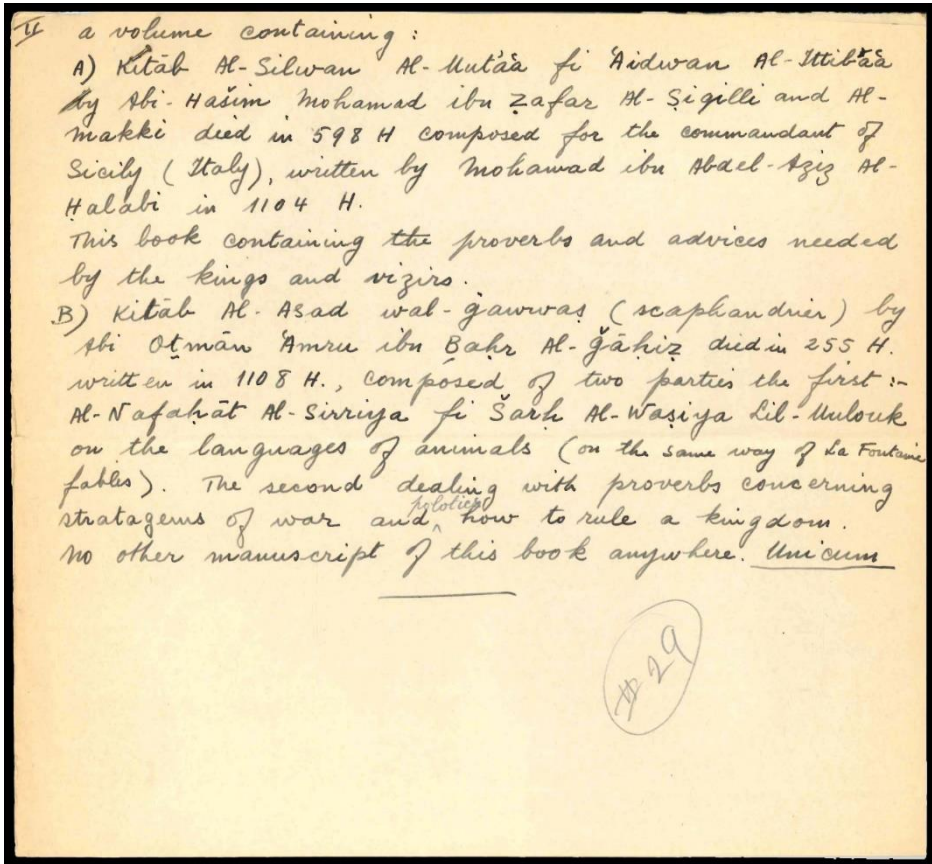 II a volume containing :
A) Kitāb Al-Silwan Al-Mutâ'a fi 'Aidwan Al-Ittibâ'a
by Abi-Hašim Mohamad ibn Ẓafar Al-Ṣigilli and Al-
Makki died in 598 H composed for the commandant of
Sicily (Italy), written by Mohamad ibn Abdel-Aziz Al-
Ḥalabi in 1104 H.
This book containing the proverbs and advices needed
by the kings and vizirs.
B) Kitāb Al-Asad wal-ġawwaṣ (scaphandrier) by
Abi Oṯmān 'Amru ibn Baḥr Al-Ǧāḥiẓ died in 255 H.
written in 1108 H., composed of two parties the first :-
Al-Nafaḥāt Al-Sirriya fi Šarḥ Al-Waṣiya Lil-Mulouk
on the languages of animals (on the same way of La Fontaine
fables). The second dealing with proverbs concerning
stratagems of war and how to rule a kingdom.
No other manuscript of this book anywhere. Unicum
#29